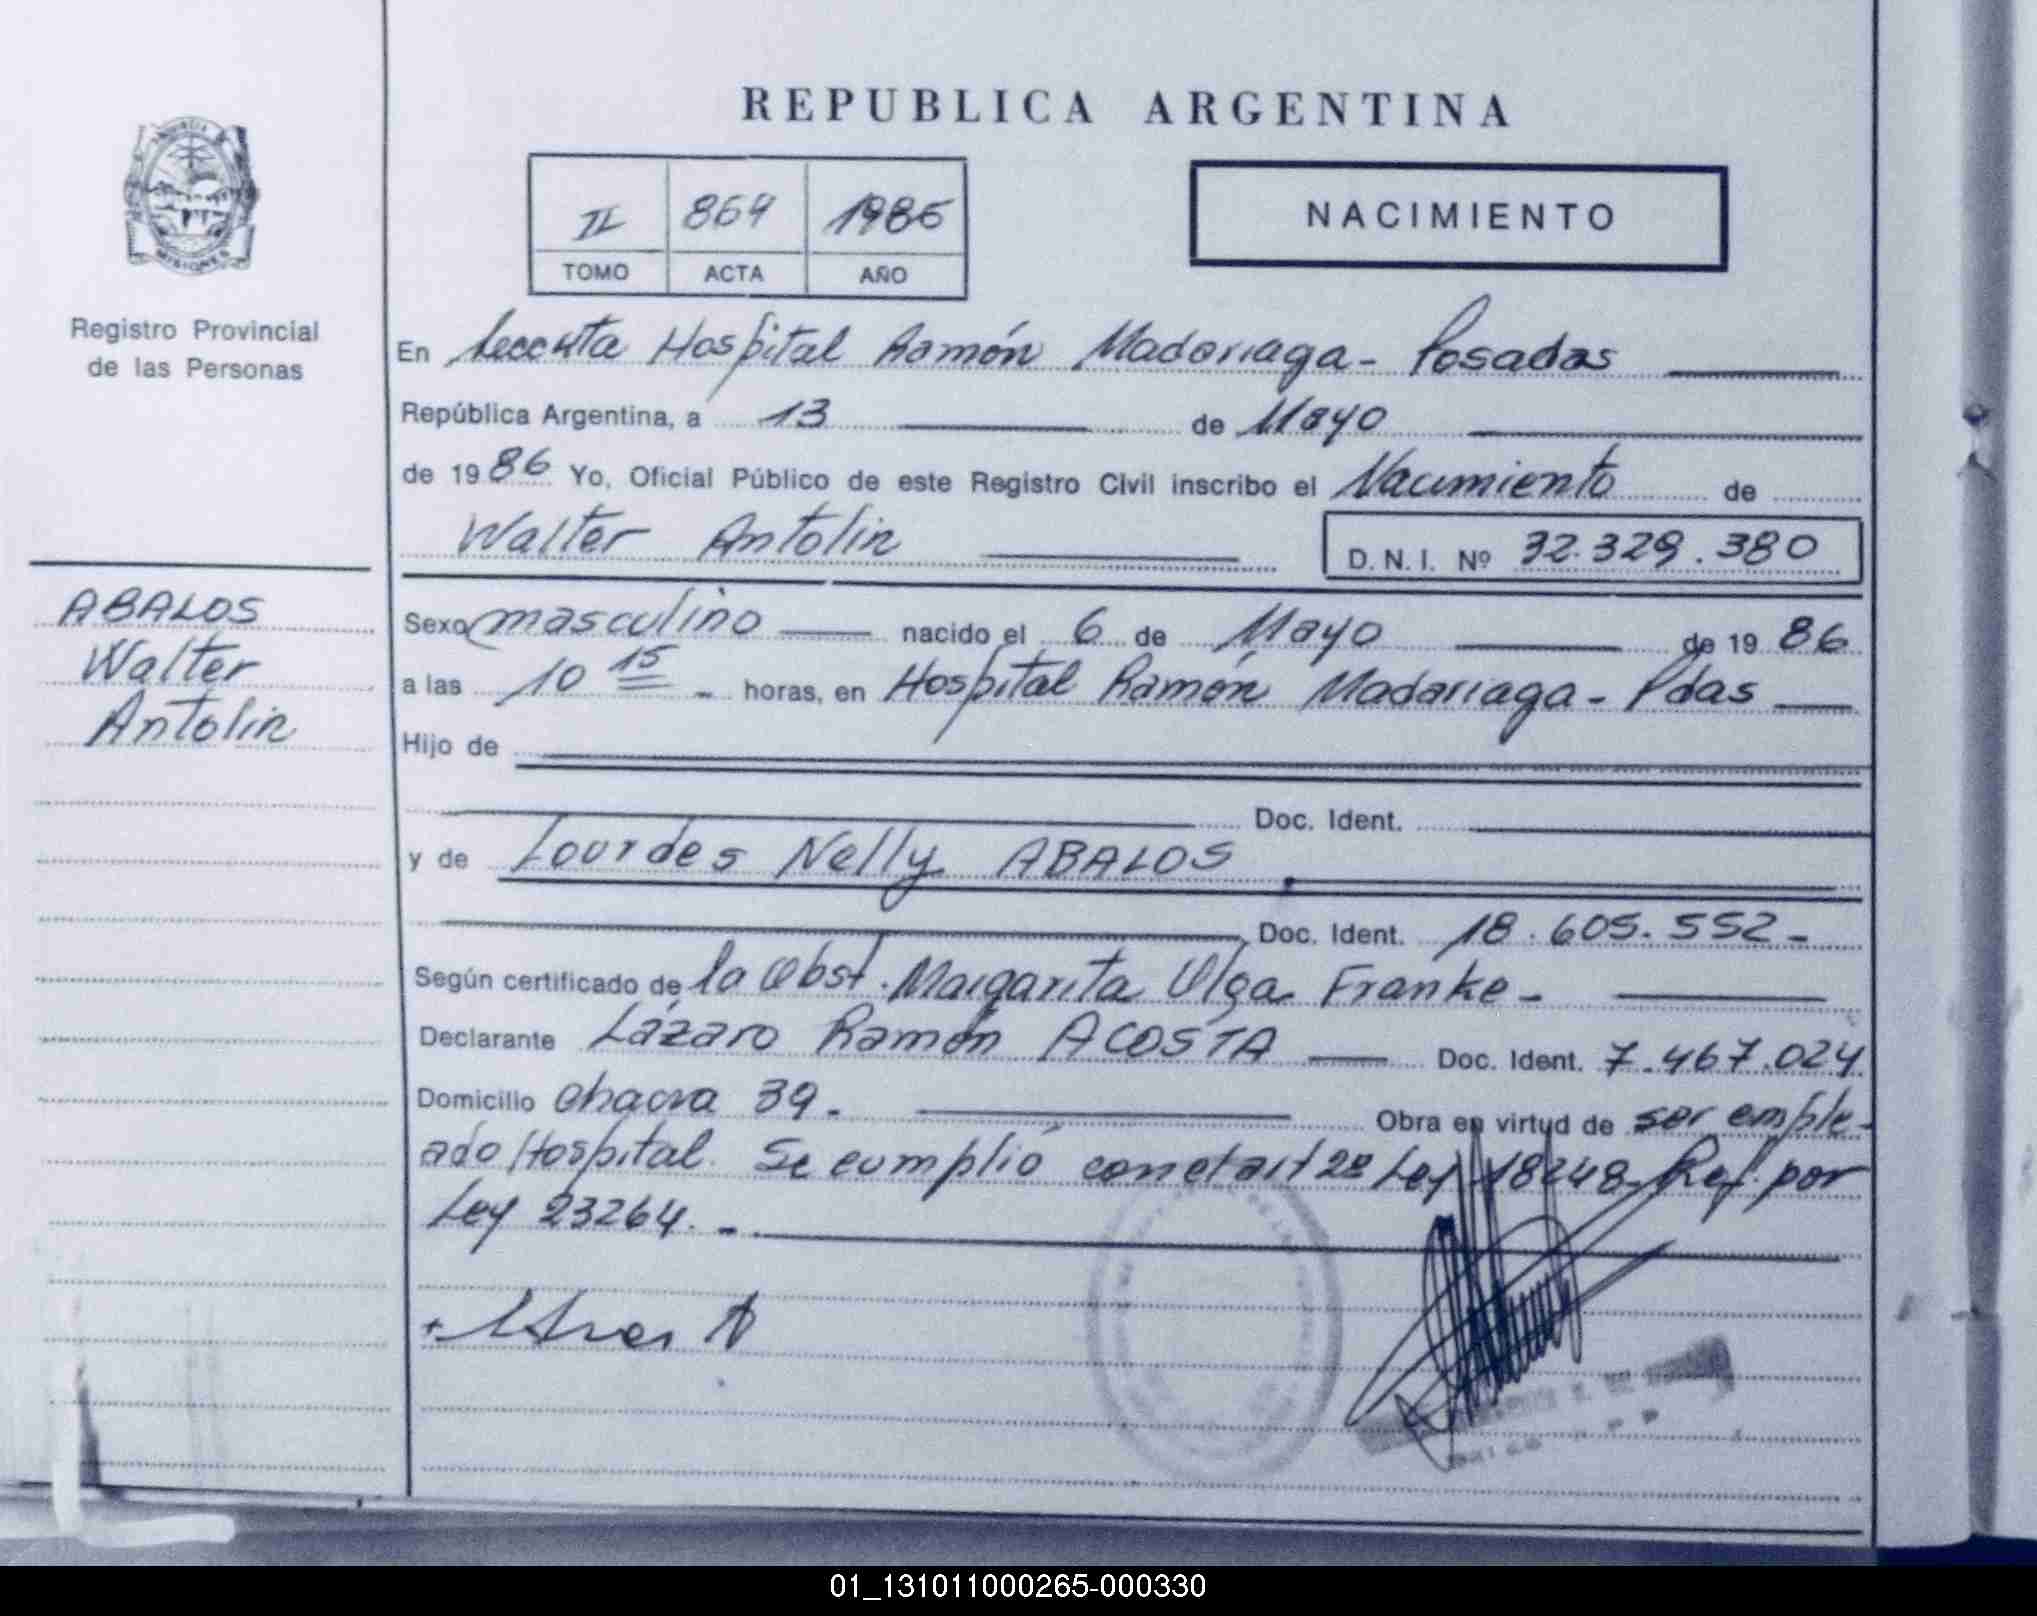 REPUBLICA ARGENTINA
II 869 1986
TOMO ACTA AÑO
NACIMIENTO
MISIONES
Registro Provincial
de las Personas
ABALOS
Walter
Antolin
En Hospital Ramón Madariaga - Posadas
República Argentina, a 13 de Mayo
de 1986 Yo, Oficial Público de este Registro Civil inscribo el Nacimiento de
Walter Antolin
D. N. I. Nº 32.329.380
Sexo masculino nacido el 6 de Mayo de 1986
a las 10 15 - horas, en Hospital Ramón Madariaga - Pdas
Hijo de
Doc. Ident.
y de Lourdes Nelly ABALOS
Doc. Ident. 18.605.552-
Según certificado de la Obst. Margarita Olga Franke -
Declarante Lázaro Ramón ACOSTA Doc. Ident. 7.467.024
Domicilio Chacra 39. Obra en virtud de ser emple-
ado Hospital. Se cumplió con el art 2º Ley 18248- Ref. por
Ley 23264. -
01_131011000265-000330